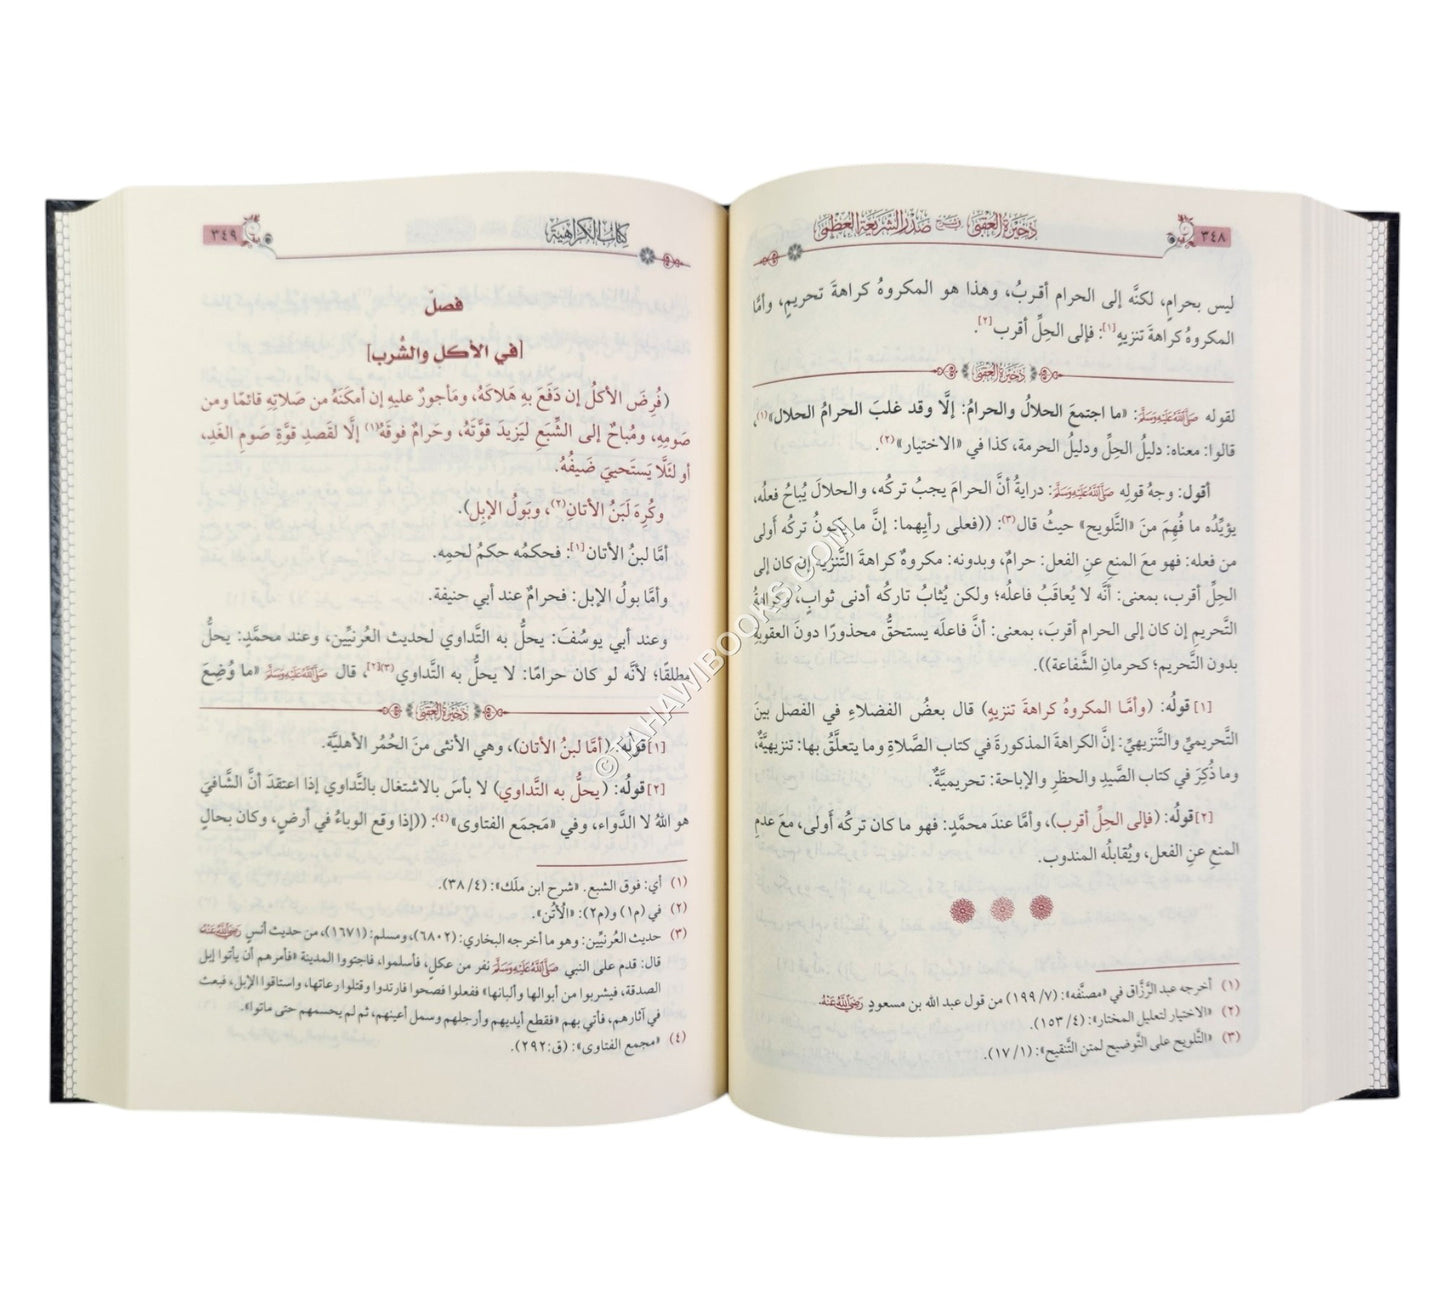 ٣٤٨
ذخيرة العقبى في شرح صدر الشريعة العظمى
ليس بحرامٍ، لكنَّه إلى الحرام أقربُ، وهذا هو المكروهُ كراهةَ تحريمٍ، وأمَّا
المكروهُ كراهةَ تنزيهٍ[١]: فإلى الحِلِّ أقرب[٢].
ذخيرة العقبى
لقوله ﷺ: «ما اجتمعَ الحلالُ والحرامُ: إلَّا وقد غلبَ الحرامُ الحلال»(١)،
قالوا: معناه: دليلُ الحِلِّ ودليلُ الحرمة، كذا في «الاختيار»(٢).
أقول: وجهُ قولِه ﷺ: درايةُ أنَّ الحرامَ يجبُ تركُه، والحلالَ يُباحُ فعلُه،
يؤيِّدُه ما فُهِمَ منَ «التَّلويح» حيثُ قال(٣): ((فعلى رأيِهما: إنَّ ما يكونُ تركُه أَولى
من فعله: فهو معَ المنعِ عنِ الفعل: حرامٌ، وبدونه: مكروهٌ كراهةَ التَّنزيه إن كان إلى
الحِلِّ أقرب، بمعنى: أنَّه لا يُعاقَبُ فاعلُه؛ ولكن يُثابُ تاركُه أدنى ثوابٍ، وكراهةُ
التَّحريمِ إن كان إلى الحرام أقربَ، بمعنى: أنَّ فاعلَه يستحقُّ محذورًا دونَ العقوبةِ
بدون التَّحريم؛ كحرمانِ الشَّفاعة)).
[١] قولُه: (وأمَّا المكروهُ كراهةَ تنزيهٍ) قال بعضُ الفضلاءِ في الفصل بينَ
التَّحريميِّ والتَّنزيهيِّ: إنَّ الكراهةَ المذكورةَ في كتاب الصَّلاة وما يتعلَّقُ بها: تنزيهيَّةٌ،
وما ذُكِرَ في كتاب الصَّيدِ والحظرِ والإباحة: تحريميَّةٌ.
[٢] قولُه: (فإلى الحِلِّ أقرب)، وأمَّا عندَ محمَّدٍ: فهو ما كان تركُه أَولى، معَ عدمِ
المنعِ عنِ الفعل، ويُقابلُه المندوب.
(١) أخرجه عبد الرَّزَّاق في «مصنَّفه»: (٧/ ١٩٩) من قول عبد الله بن مسعودٍ رَضِيَ اللَّهُ عَنْهُ.
(٢) «الاختيار لتعليل المختار»: (٤/ ١٥٣).
(٣) «التَّلويح على التَّوضيح لمتن التَّنقيح»: (١/ ١٧).
كتاب الكراهية
٣٤٩
فصلٌ
[في الأكل والشُرب]
(فُرِضَ الأكلُ إن دَفَعَ بهِ هَلاكَهُ، ومَأجورٌ عليهِ إن أمكَنَهُ من صَلاتِهِ قائمًا ومن
صَومِهِ، ومُباحٌ إلى الشِّبَعِ لِيَزيدَ قوَّتَهُ، وحَرامٌ فوقَهُ(١) إلَّا لقَصدِ قوَّةِ صَومِ الغَدِ،
أو لئَلَّا يَستَحييَ ضَيفُهُ.
وكُرِهَ لَبَنُ الأتانِ(٢)، وبَولُ الإبِل).
أمَّا لبنُ الأتان[١]: فحكمُه حكمُ لحمِه.
وأمَّا بولُ الإبل: فحرامٌ عند أبي حنيفة.
وعند أبي يوسُفَ: يحلُّ به التَّداوي لحديث العُرنيِّين، وعند محمَّدٍ: يحلُّ
مطلقًا؛ لأنَّه لو كان حرامًا: لا يحلُّ به التَّداوي(٣)[٢]، قال ﷺ «ما وُضِعَ
ذخيرة العقبى
[١] قولُه: (أمَّا لبنُ الأتان)، وهي الأنثى منَ الحُمُر الأهليَّة.
[٢] قولُه: (يحلُّ به التَّداوي) لا بأسَ بالاشتغال بالتَّداوي إذا اعتقدَ أنَّ الشَّافيَ
هو اللهُ لا الدَّواء، وفي «مَجمَع الفتاوى»(٤): ((إذا وقع الوباءُ في أرضٍ، وكان بحالٍ
(١) أي: فوق الشبع. «شرح ابن ملَك»: (٤/ ٣٨).
(٢) في (م١) و(م٢): «الأُتُن».
(٣) حديث العُرنيِّين: وهو ما أخرجه البخاري: (٦٨٠٢)، ومسلم: (١٦٧١)، من حديث أنسٍ رَضِيَ اللَّهُ عَنْهُ
قال: قدم على النبي ﷺ نفر من عكل، فأسلموا، فاجتووا المدينة «فأمرهم أن يأتوا إبل
الصدقة، فيشربوا من أبوالها وألبانها» ففعلوا فصحوا فارتدوا وقتلوا رعاتها، واستاقوا الإبل، فبعث
في آثارهم، فأتي بهم «فقطع أيديهم وأرجلهم وسمل أعينهم، ثم لم يحسمهم حتى ماتوا».
(٤) «مجمع الفتاوى»: (ق:٢٩٢).
©TAHAWIBOOKS.COM